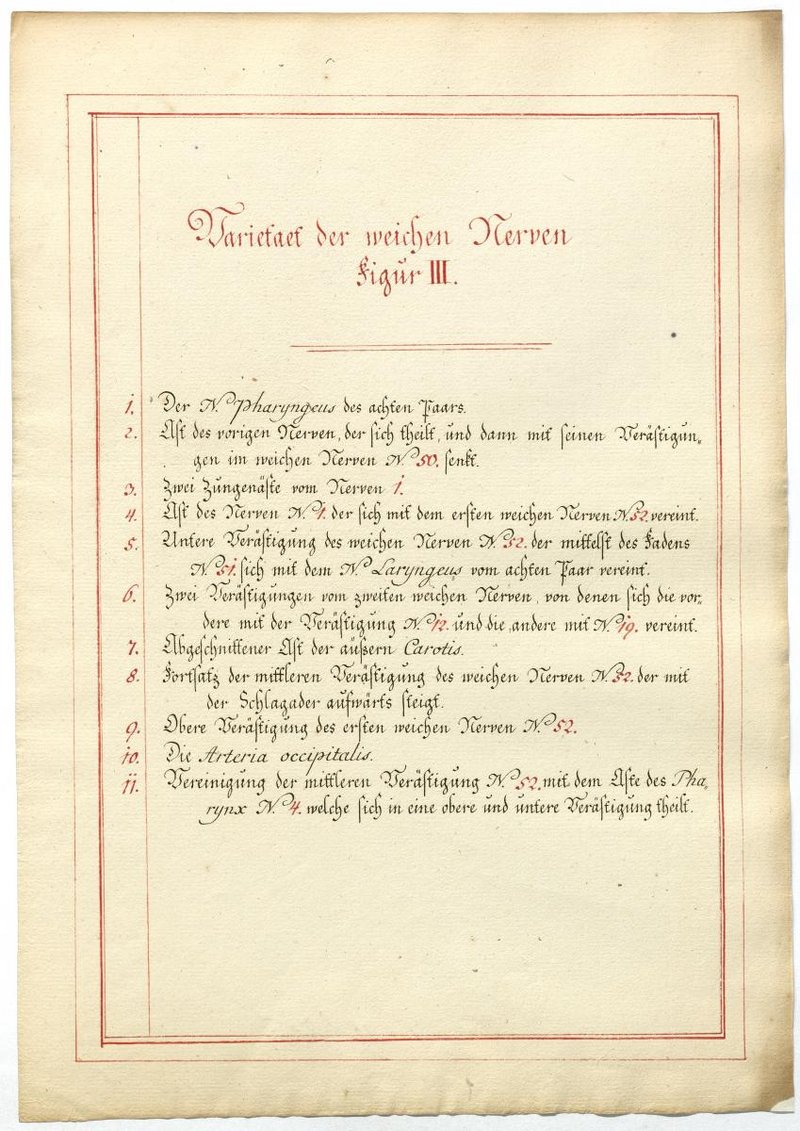 Varietaet der weichen Nerven
Figur III.
1. Der N. Pharyngeus des achten Paars.
2. Ast des vorigen Nerven, der sich theilt, und dann mit seinen Verästigun„
gen im weichen Nerven No 50. senkt.
3. Zwei Zungenäste vom Nerven 1.
4. Ast des Nerven No 1. der sich mit dem ersten weichen Nerven No 52. vereint.
5. Untere Verästigung des weichen Nerven No 52. der mittelst des Fadens
No 51. sich mit dem N. Laryngeus vom achten Paar vereint.
6. Zwei Verästigungen vom zweiten weichen Nerven, von denen sich die vor„
dere mit der Verästigung No 12. und die andere mit No 19. vereint.
7. Abgeschnittener Ast der äußern Carotis.
8. Fortsatz der mittleren Verästigung des weichen Nerven No 52. der mit
der Schlagader aufwärts steigt.
9. Obere Verästigung des ersten weichen Nerven No 52.
10. Die Arteria occipitalis.
11. Vereinigung der mittleren Verästigung No 52. mit dem Aste des Pha„
rynx No 4. welche sich in eine obere und untere Verästigung theilt.